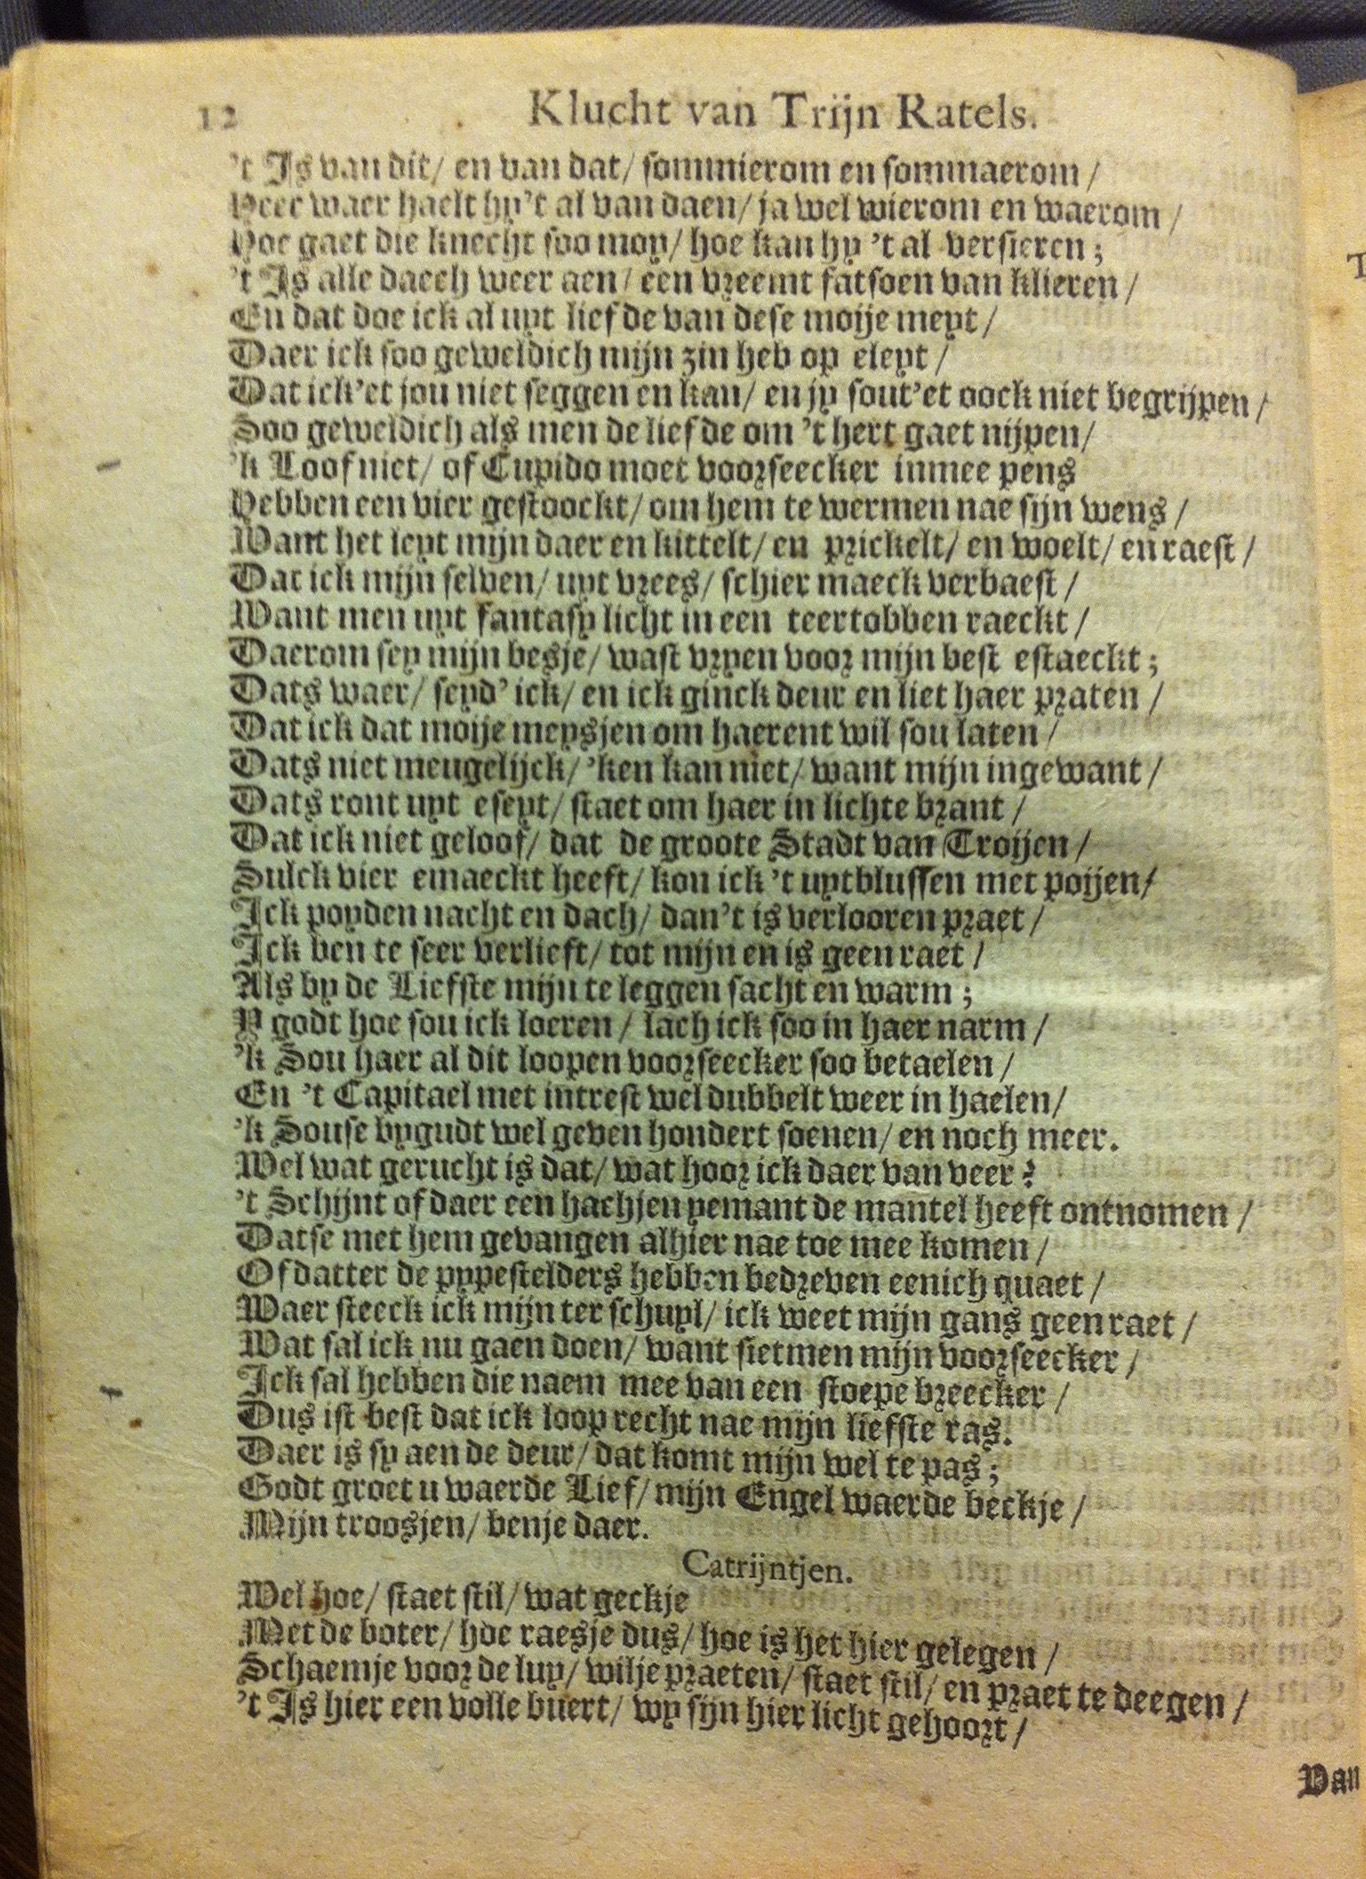 12 Klucht van Trijn Ratels.
't Is van dit/ en van dat/ sommierom en sommaerom/
Heer waer haelt hy't al van daen/ ja wel wierom en waerom/
Hoe gaet die knecht soo moy/ hoe kan hy 't al versieren;
't Is alle daech weer aen/ een vreemt fatsoen van klieren/
En dat doe ick al uyt liefde van dese moije meyt/
Daer ick soo geweldich mijn zin heb op eleyt/
Dat ick'et jou niet seggen en kan/ en jy sout'et oock niet begrijpen/
Soo geweldich als men de liefde om 't hert gaet nijpen/
'k Loof niet/ of Cupido moet voorseecker inmee pens
Hebben een vier gestoockt/ om hem te wermen nae sijn wens/
Want het leyt mijn daer en kittelt/ en prickelt/ en woelt/ en raest/
Dat ick mijn selven/ uyt vrees/ schier maeck verbaest/
Want men uyt fantasy licht in een teertobben raeckt/
Daerom sey mijn besje/ wast vryen voor mijn best estaeckt;
Dats waer/ seyd' ick/ en ick ginck deur en liet haer praten/
Dat ick dat moije meysjen om haerent wil sou laten/
Dats niet meugelijck/ 'ken kan niet/ want mijn ingewant/
Dats ront uyt eseyt/ staet om haer in lichte brant/
Dat ick niet geloof/ dat de groote Stadt van Troijen/
Sulck vier emaeckt heeft/ kon ick 't uytblussen met poijen/
Ick poyden nacht en dach/ dan't is verlooren praet/
Ick ben te seer verlieft/ tot mijn en is geen raet/
Als by de Liefste mijn te leggen sacht en warm;
Y godt hoe sou ick loeren/ lach ick soo in haer narm/
'k Sou haer al dit loopen voorseecker soo betaelen/
En 't Capitael met intrest wel dubbelt weer in haelen/
'k Souse bygudt wel geven hondert soenen/ en noch meer.
Wel wat gerucht is dat/ wat hoor ick daer van veer?
't Schijnt of daer een hachjen yemant de mantel heeft ontnomen/
Datse met hem gevangen alhier nae toe mee komen/
Of datter de pypestelders hebben bedreven eenich quaet/
Waer steeck ick mijn ter schuyl/ ick weet mijn gans geen raet/
Wat sal ick nu gaen doen/ want sietmen mijn voorseecker/
Ick sal hebben die naem mee van een stoepe breecker/
Dus ist best dat ick loop recht nae mijn liefste ras.
Daer is sy aen de deur/ dat komt mijn wel te pas;
Godt groet u waerde Lief/ mijn Engel waerde beckje/
Mijn troosjen/ benje daer.
Catrijntjen.
Wel hoe/ staet stil/ wat geckje
Met de boter/ hoe raesje dus/ hoe is het hier gelegen/
Schaemje voor de luy/ wilje praeten/ staet stil/ en praet te deegen/
't Is hier een volle buert/ wy sijn hier licht gehoort/
Van